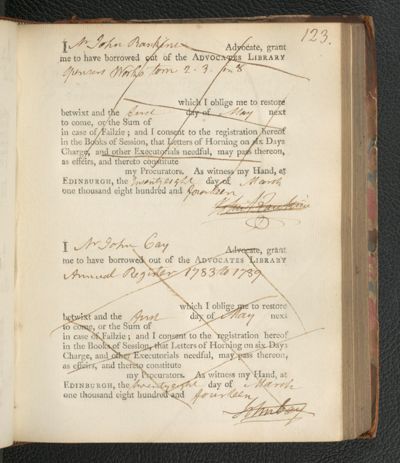 123.
I Mr John Rankine Advocate, grant
me to have borrowed out of the ADVOCATES LIBRARY
Spencers Works tom 2. 3.
which I oblige me to restore
betwixt and the first day of May next
to come, or the Sum of
in case of Failzie; and I consent to the registration hereof
in the Books of Session, that Letters of Horning on six Days
Charge, and other Executorials needful, may pass thereon,
as effeirs, and thereto constitute
my Procurators. As witness my Hand, at
EDINBURGH, the twentyeight day of March
one thousand eight hundred and fourteen
John Rankine
I Mr John Cay Advocate, grant
me to have borrowed out of the ADVOCATES LIBRARY
Annual Register 1783 to 1789
which I oblige me to restore
betwixt and the first day of May next
to come, or the Sum of
in case of Failzie; and I consent to the registration hereof
in the Books of Session, that Letters of Horning on six Days
Charge, and other Executorials needful, may pass thereon,
as effeirs, and thereto constitute
my Procurators. As witness my Hand, at
EDINBURGH, the twentyeight day of March
one thousand eight hundred and fourteen
John Cay